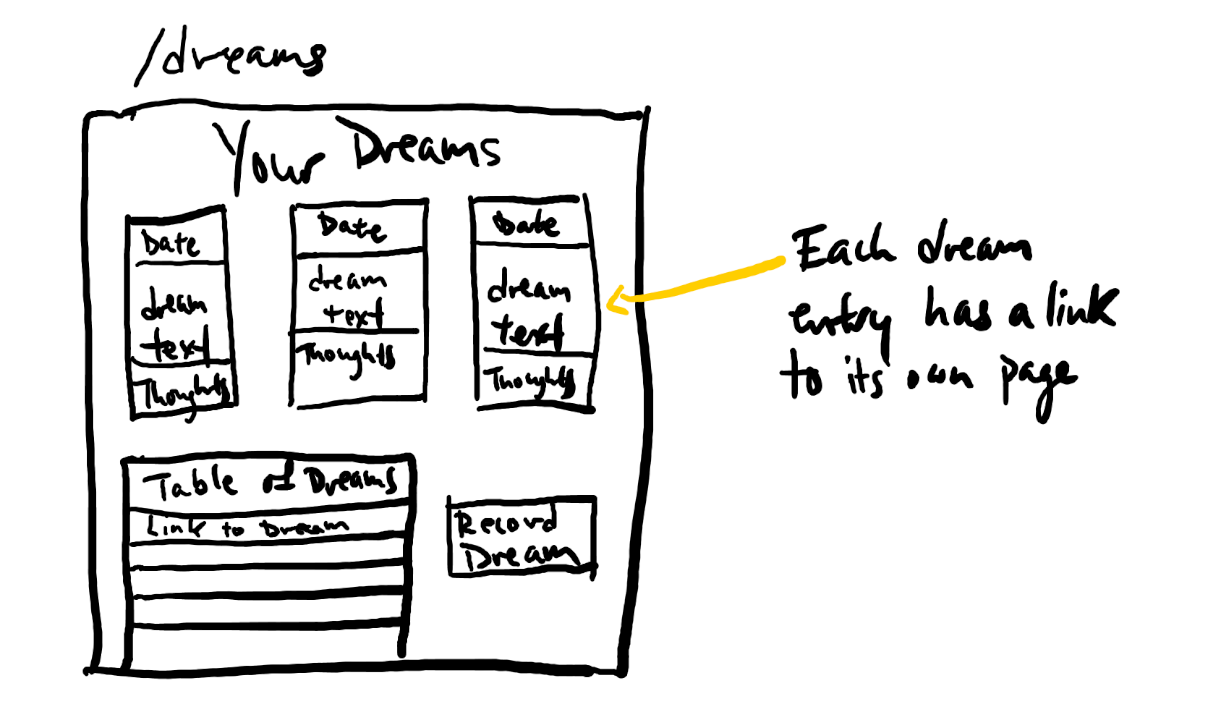 /dreams
Your Dreams
Date
dream
text
Thoughts
Date
dream
text
Thoughts
Date
dream
text
Thoughts
Each dream
entry has a link
to its own page
Table of Dreams
Link to Dream
Record
Dream